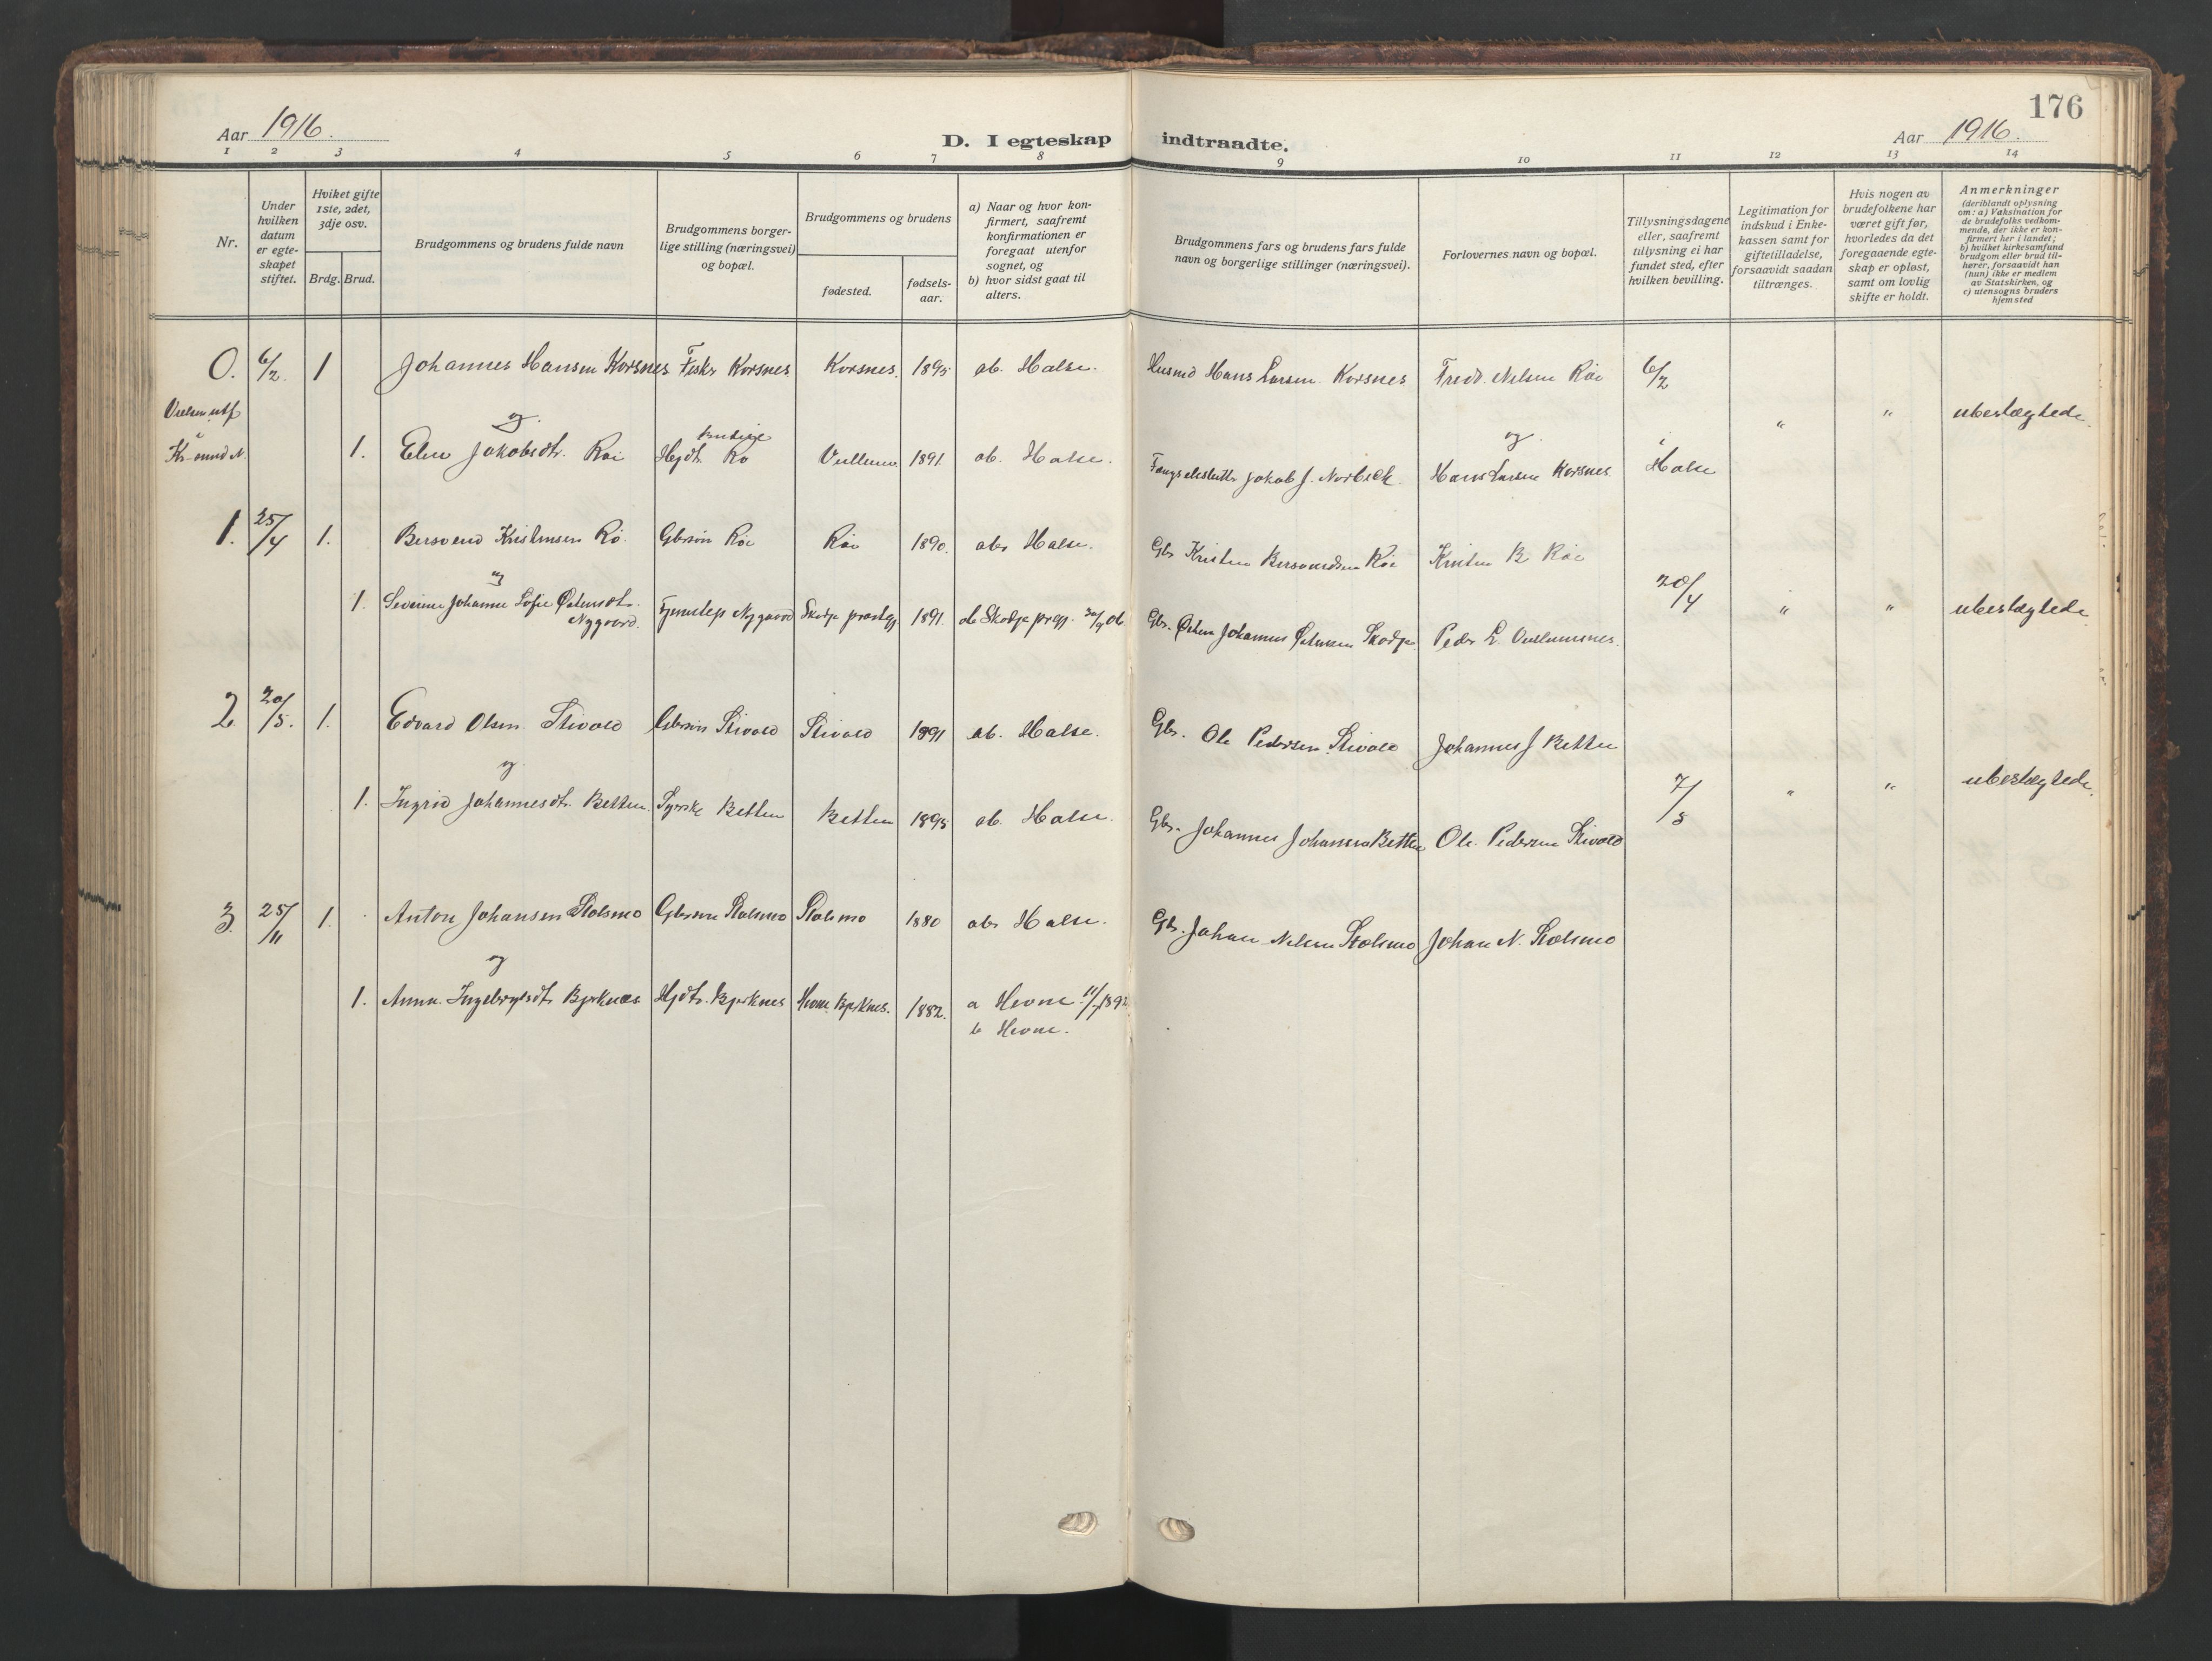 176
Aar 1916.
D. I egteskap indtraadte.
Aar 1916.
1 2 3 4 5 6 7 8 9 10 11 12 13 14
Nr.
Under hvilken datum er egte-skapet stiftet.
Hviket gifte 1ste, 2det, 3dje osv.
Brdg. Brud.
Brudgommens og brudens fulde navn
Brudgommens borger-lige stilling (næringsvei) og bopæl.
Brudgommens og brudens
fødested.
fødsels-aar.
a) Naar og hvor kon-firmert, saafremt konfirmationen er foregaat utenfor sognet, og
b) hvor sidst gaat til alters.
Brudgommens fars og brudens fars fulde navn og borgerlige stillinger (næringsvei).
Forlovernes navn og bopæl.
Tillysningsdagene eller, saafremt tillysning ei har fundet sted, efter hvilken bevilling.
Legitimation for indskud i Enke-kassen samt for giftetilladelse, forsaavidt saadan tiltrænges.
Hvis nogen av brudefolkene har været gift før, hvorledes da det foregaaende egte-skap er opløst, samt om lovlig skifte er holdt.
Anmerkninger (deriblandt oplysning om: a) Vaksination for de brudefolks vedkom-mende, der ikke er kon-firmert her i landet; b) hvilket kirkesamfund brudgom eller brud til-hører, forsaavidt han (hun) ikke er medlem av Statskirken, og c) utensogns bruders hjemsted
0. 6/2. 1 Johannes Hansen Korsnes Fisker Korsnes Korsnes. 1895 ab. Halse. Husmd Hans Larsen Korsnes Fredr. Nilsen Röe 6/2
Vielsen utf og ubeslægtede
i Kr-sund N. 1. Elen Jakobsdtr. Röe Hjdt. Rö Vullum 1891. ab. Halse. Jakob J. Norbeck og Hans Larsen Korsnes i Halse
1. 25/4 1. Bersvend Kristensen Rö. Gbrsön Röe Röe 1890. abs Halse. Gbr Kristen Bersvendsen Röe Kristen B. Röe
og 20/4 " " ubeslægtede
1. Severine Johanne Sofie Östensdtr. Nygaard. Tjenestep Nygaard Skodje prestegj 1891. ab Skodje prgj. Gbr. Östen Johannes Östensen Skodje Peder L. Vullumsnes.
2 20/5. 1. Edvard Olsen Stivold Gbrsön Stivold Stivold 1891 ab. Halse. Gbr. Ole Pedersen Stivold Johannes J Betten
og 7/5 " " ubeslægtede.
1. Ingrid Johannesdtr. Betten. Syerske Betten Betten 1895 ab. Halse. Gbr. Johannes Johansen Betten Ole Pedersen Stivold
3. 25/11 1. Anton Johansen Stolsmo Gbrsön Stolsmo Stolsmo 1880 abs Halse. Gbr. Johan Nilsen Stolsmo Johan N. Stolsmo
og
1. Anna Ingebrigtsdtr Bjerknes Hjdtr. Bjerknes Hevne Bjerknes. 1882. a Hevne
b Hevne.